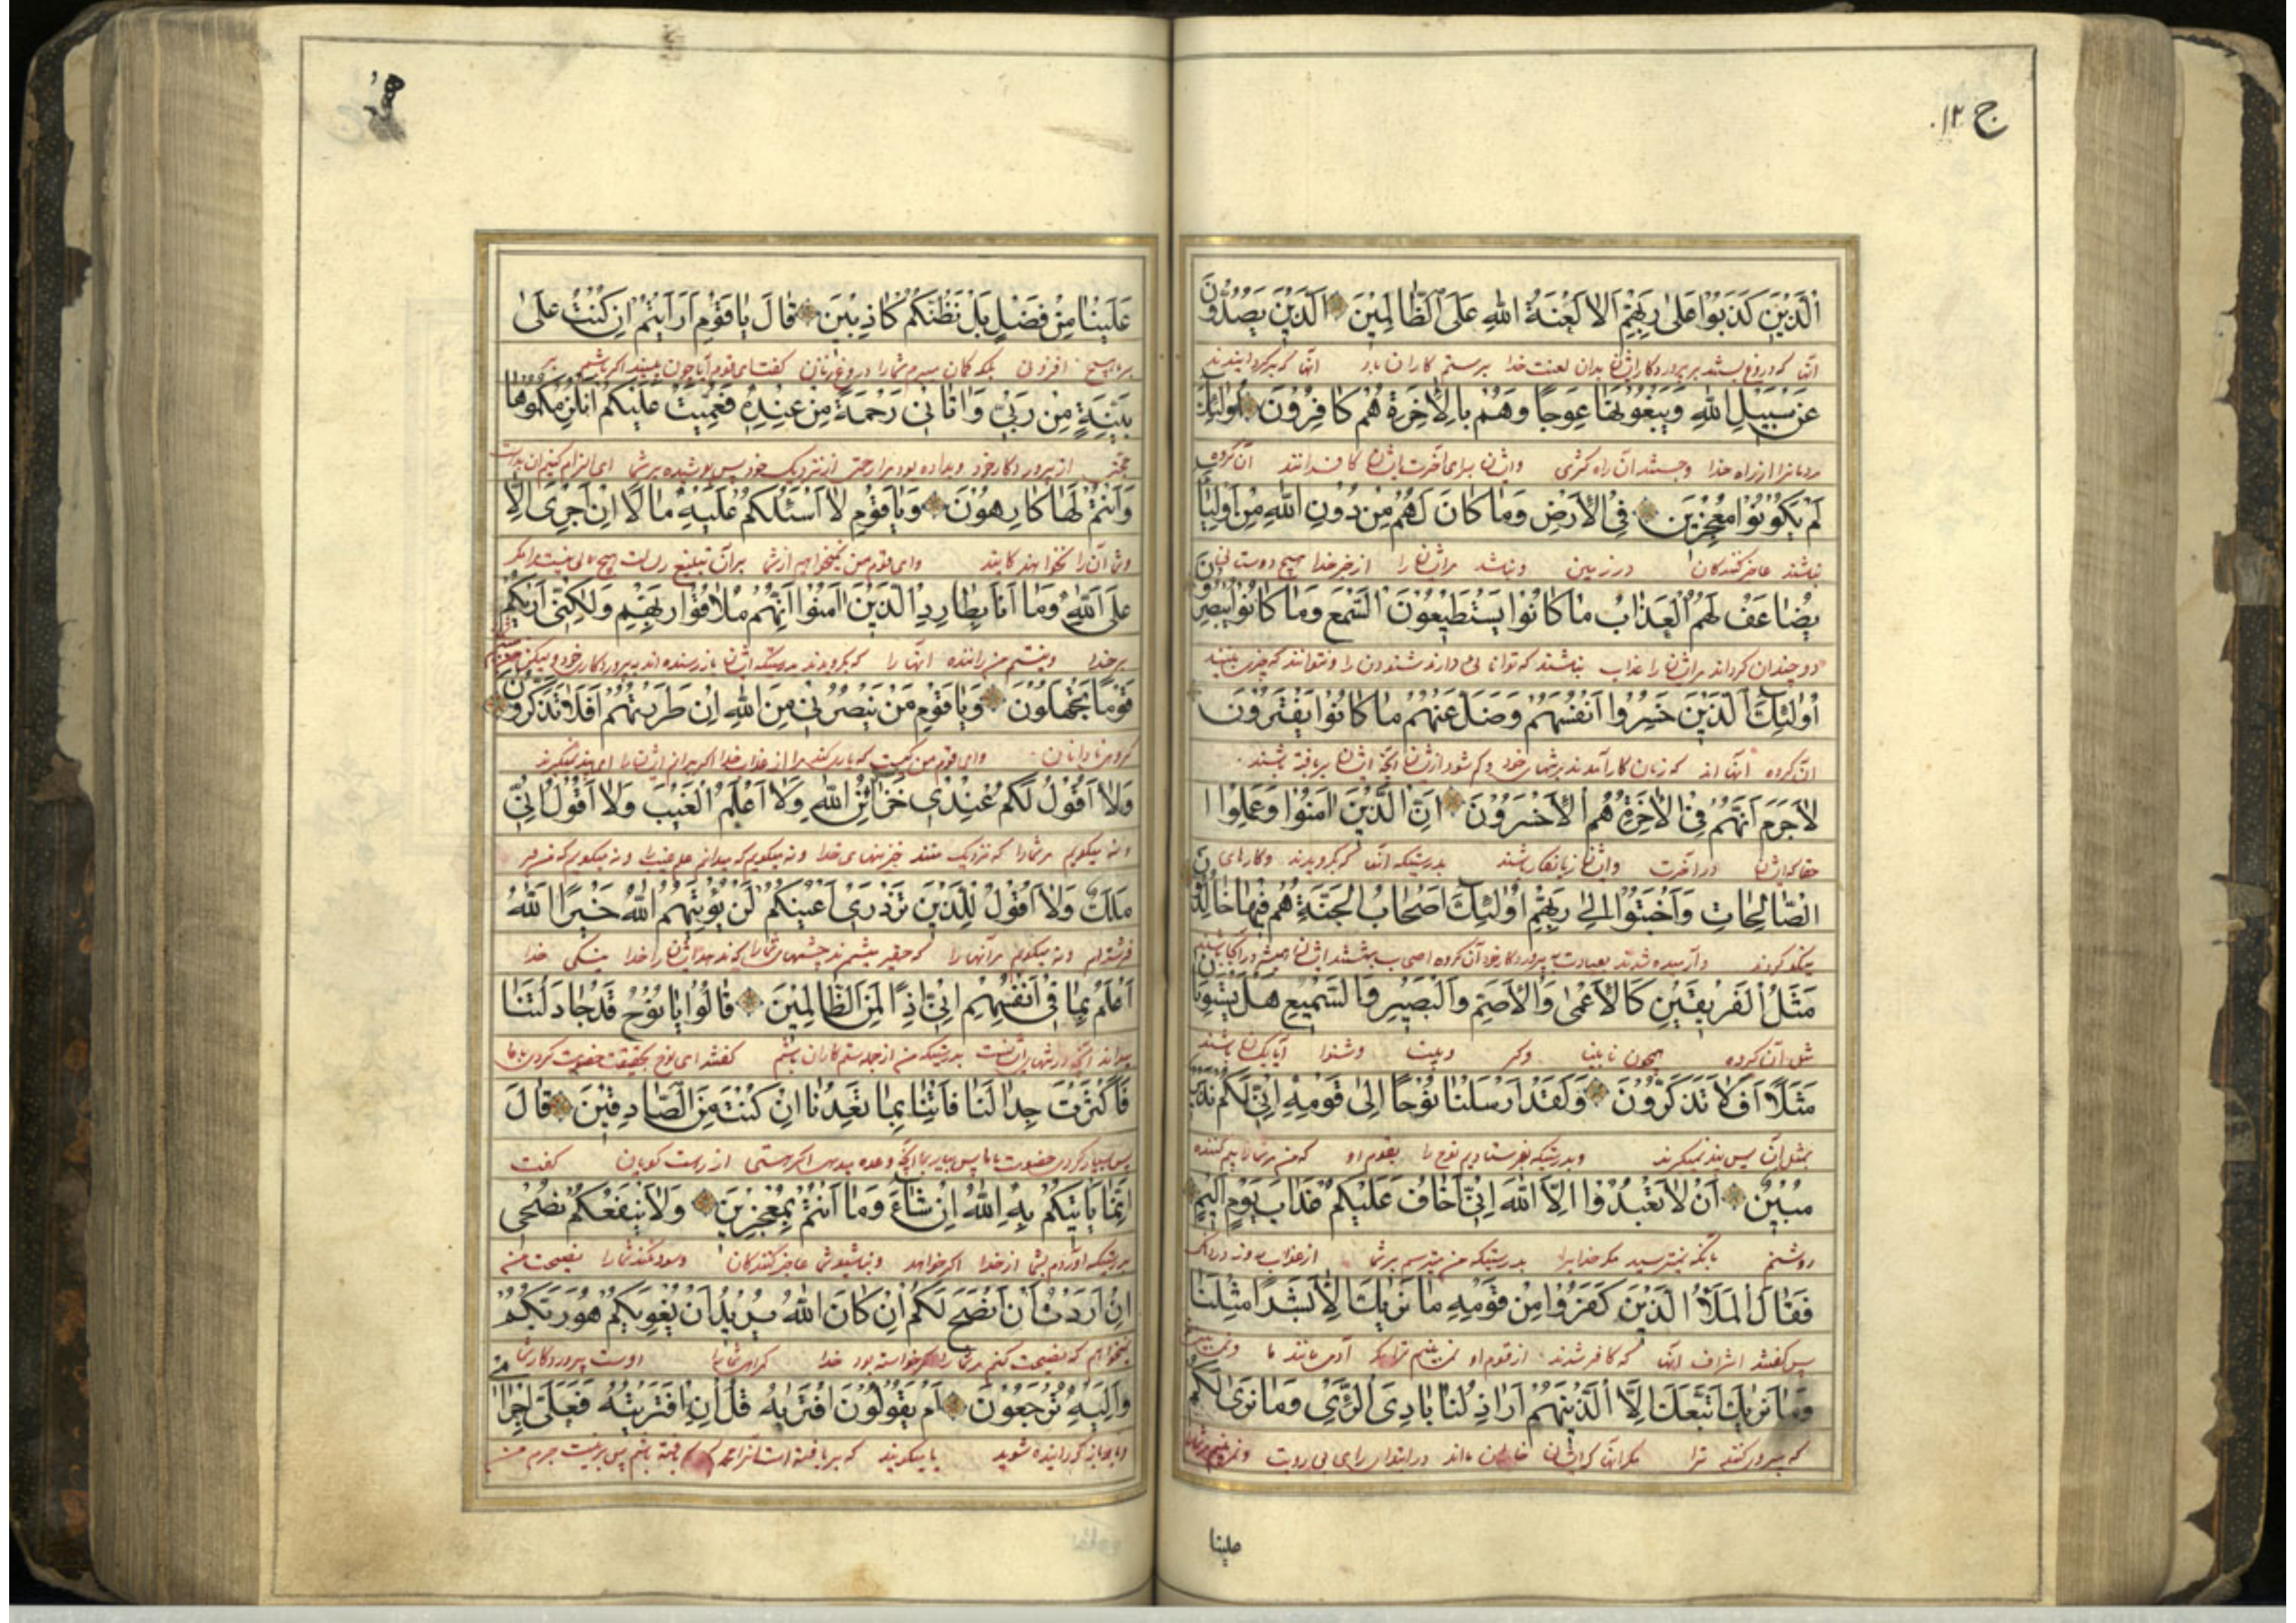 ج ۱۲
الَّذِينَ كَذَبُوا عَلىٰ رَبِّهِمْ اَلَا لَعْنَةُ اللهِ عَلَى الظَّالِمِينَ الَّذِينَ يَصُدُّونَ
آنها که دروغ بستند بر پروردگار ایشان بدان لعنت خدا بر ستم کاران باد آنها که برگردانیدند
عَنْ سَبِيلِ اللهِ وَيَبْغُونَهَا عِوَجًا وَهُمْ بِالْاٰخِرَةِ هُمْ كَافِرُونَ اُولٰئِكَ
مردمانرا از راه خدا و جستند آن راه کژی و ایشان برای آخرت ایشان کافرانند آن گروه
لَمْ يَكُونُوا مُعْجِزِينَ فِي الْاَرْضِ وَمَا كَانَ لَهُمْ مِنْ دُونِ اللهِ مِنْ اَوْلِيَاءَ
نباشند عاجز کنندگان در زمین و نباشد مر ایشان را از جز خدا هیچ دوستانی
يُضَاعَفُ لَهُمُ الْعَذَابُ مَا كَانُوا يَسْتَطِيعُونَ السَّمْعَ وَمَا كَانُوا يُبْصِرُونَ
دو چندان گرداند مر ایشان را عذاب نباشند که توانائی دارند شنودن را و نتوانند که چیزی بینند
اُولٰئِكَ الَّذِينَ خَسِرُوا اَنْفُسَهُمْ وَضَلَّ عَنْهُمْ مَا كَانُوا يَفْتَرُونَ
آن گروه آنها اند که زیان کار آمدند
لَاجَرَمَ اَنَّهُمْ فِي الْاٰخِرَةِ هُمُ الْاَخْسَرُونَ اِنَّ الَّذِينَ اٰمَنُوا وَعَمِلُوا ا
حقا که ایشان در آخرت و ایشان زیانکار باشند بدرستیکه آنها که گرویدند و کارهای
لصَّالِحَاتِ وَاَخْبَتُوا اِلىٰ رَبِّهِمْ اُولٰئِكَ اَصْحَابُ الْجَنَّةِ هُمْ فِيهَا خَالِدُونَ
نیکو کردند و آرمیده شدند بعبادت پروردگار خود آن گروه اصحاب بهشتند ایشان
مَثَلُ الْفَرِيقَيْنِ كَالْاَعْمىٰ وَالْاَصَمِّ وَالْبَصِيرِ وَالسَّمِيعِ هَلْ يَسْتَوِيَانِ
مثل آن گروه همچون نابینا و کر و بینا و شنوا آیا یکسان باشند
مَثَلًا اَفَلَا تَذَكَّرُونَ وَلَقَدْ اَرْسَلْنَا نُوحًا اِلىٰ قَوْمِهِ اِنِّي لَكُمْ نَذِيرٌ
بمثل آن پس پند نمیگیرند و بدرستیکه بفرستادیم نوح را بقوم او که من مر شما را بیم کننده
مُبِينٌ اَنْ لَا تَعْبُدُوا اِلَّا اللهَ اِنِّي اَخَافُ عَلَيْكُمْ عَذَابَ يَوْمٍ اَلِيمٍ
روشنم بآنکه نپرستید مگر خدایرا بدرستیکه من میترسم بر شما از عذاب روز دردناک
فَقَالَ الْمَلَاُ الَّذِينَ كَفَرُوا مِنْ قَوْمِهِ مَا نَرٰيكَ اِلَّا بَشَرًا مِثْلَنَا
پس گفتند اشراف آنها که کافر شدند از قوم او نمی بینیم ترا مگر آدمی مانند ما و نمی بینیم
وَمَا نَرٰيكَ اتَّبَعَكَ اِلَّا الَّذِينَ هُمْ اَرَاذِلُنَا بَادِيَ الرَّأْيِ وَمَا نَرىٰ لَكُمْ
که پیروی کنند ترا مگر آنها که ایشان در ابتدای رای بی رویت
علینا
عَلَيْنَا مِنْ فَضْلٍ بَلْ نَظُنُّكُمْ كَاذِبِينَ قَالَ يَا قَوْمِ اَرَاَيْتُمْ اِنْ كُنْتُ عَلىٰ
بر ما هیچ افزونی بلکه گمان میبرم شما را دروغ زنان گفت ای قوم آیا چون بینید اگر باشم بر
بَيِّنَةٍ مِنْ رَبِّي وَاٰتَانِي رَحْمَةً مِنْ عِنْدِهِ فَعُمِّيَتْ عَلَيْكُمْ اَنُلْزِمُكُمُوهَا
حجتی از پروردگار خود و بداده بود مرا رحمتی از نزدیک خود پس پوشیده بر شما
وَاَنْتُمْ لَهَا كَارِهُونَ وَيَا قَوْمِ لَا اَسْئَلُكُمْ عَلَيْهِ مَالًا اِنْ اَجْرِيَ اِلَّا
و شما آن را نخواهندگانید و ای قوم من نمیخواهیم از شما بر آن تبلیغ رسالت هیچ مالی نیست مزد من مگر
عَلَى اللهِ وَمَا اَنَا بِطَارِدِ الَّذِينَ اٰمَنُوا اِنَّهُمْ مُلَاقُوا رَبِّهِمْ وَلٰكِنِّي اَرٰيكُمْ
بر خدا و نیستم من راننده آنها را که گرویدند بدرستیکه ایشان باز رسنده اند به پروردگار خود
قَوْمًا تَجْهَلُونَ وَيَا قَوْمِ مَنْ يَنْصُرُنِي مِنَ اللهِ اِنْ طَرَدْتُهُمْ اَفَلَا تَذَكَّرُونَ
گروهی نادانان و ای قوم من کیست که یاری کند مرا از عذاب خدا اگر برانم ایشان را
وَلَا اَقُولُ لَكُمْ عِنْدِي خَزَائِنُ اللهِ وَلَا اَعْلَمُ الْغَيْبَ وَلَا اَقُولُ اِنِّي
و نه میگویم مر شما را که نزدیک منند خزینهای خدا و نه میگویم که میدانم علم غیب را و نه میگویم که من
مَلَكٌ وَلَا اَقُولُ لِلَّذِينَ تَزْدَرِي اَعْيُنُكُمْ لَنْ يُؤْتِيَهُمُ اللهُ خَيْرًا اللهُ
فرشته ام و نه میگویم مر آنها را که حقیر بینند چشمهای شما را خدا نیکی خدا
اَعْلَمُ بِمَا فِي اَنْفُسِهِمْ اِنِّي اِذًا لَمِنَ الظَّالِمِينَ قَالُوا يَا نُوحُ قَدْ جَادَلْتَنَا
بدرستیکه من از جمله ستم کاران باشم گفتند ای نوح بحقیقت خصومت کردی با ما
فَاَكْثَرْتَ جِدَالَنَا فَأْتِنَا بِمَا تَعِدُنَا اِنْ كُنْتَ مِنَ الصَّادِقِينَ قَالَ
پس بسیار کردی خصومت با ما پس بیار بما آنچه وعده میدهی اگر هستی از راست گویان گفت
اِنَّمَا يَأْتِيكُمْ بِهِ اللهُ اِنْ شَاءَ وَمَا اَنْتُمْ بِمُعْجِزِينَ وَلَا يَنْفَعُكُمْ نُصْحِي
بدرستیکه آورد آن بشما از خدا اگر خواهد و نباشید شما عاجز کنندگان و سود نکند شما را نصیحت من
اِنْ اَرَدْتُ اَنْ اَنْصَحَ لَكُمْ اِنْ كَانَ اللهُ يُرِيدُ اَنْ يُغْوِيَكُمْ هُوَ رَبُّكُمْ
که نصیحت کنم مر شما را اگر خواسته بود خدا گمراهی شما را اوست پروردگار شما
وَاِلَيْهِ تُرْجَعُونَ اَمْ يَقُولُونَ افْتَرٰيهُ قُلْ اِنِ افْتَرَيْتُهُ فَعَلَيَّ اِجْرَا
و باو باز گردانیده شوید یا میگویند که بر بافته است باشم پس بر منست جرم من